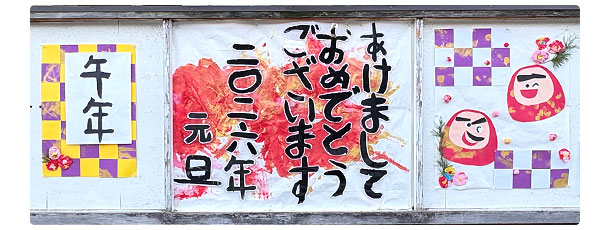 あけまして
おめでとう
ございます
二〇二六年
元旦
午年